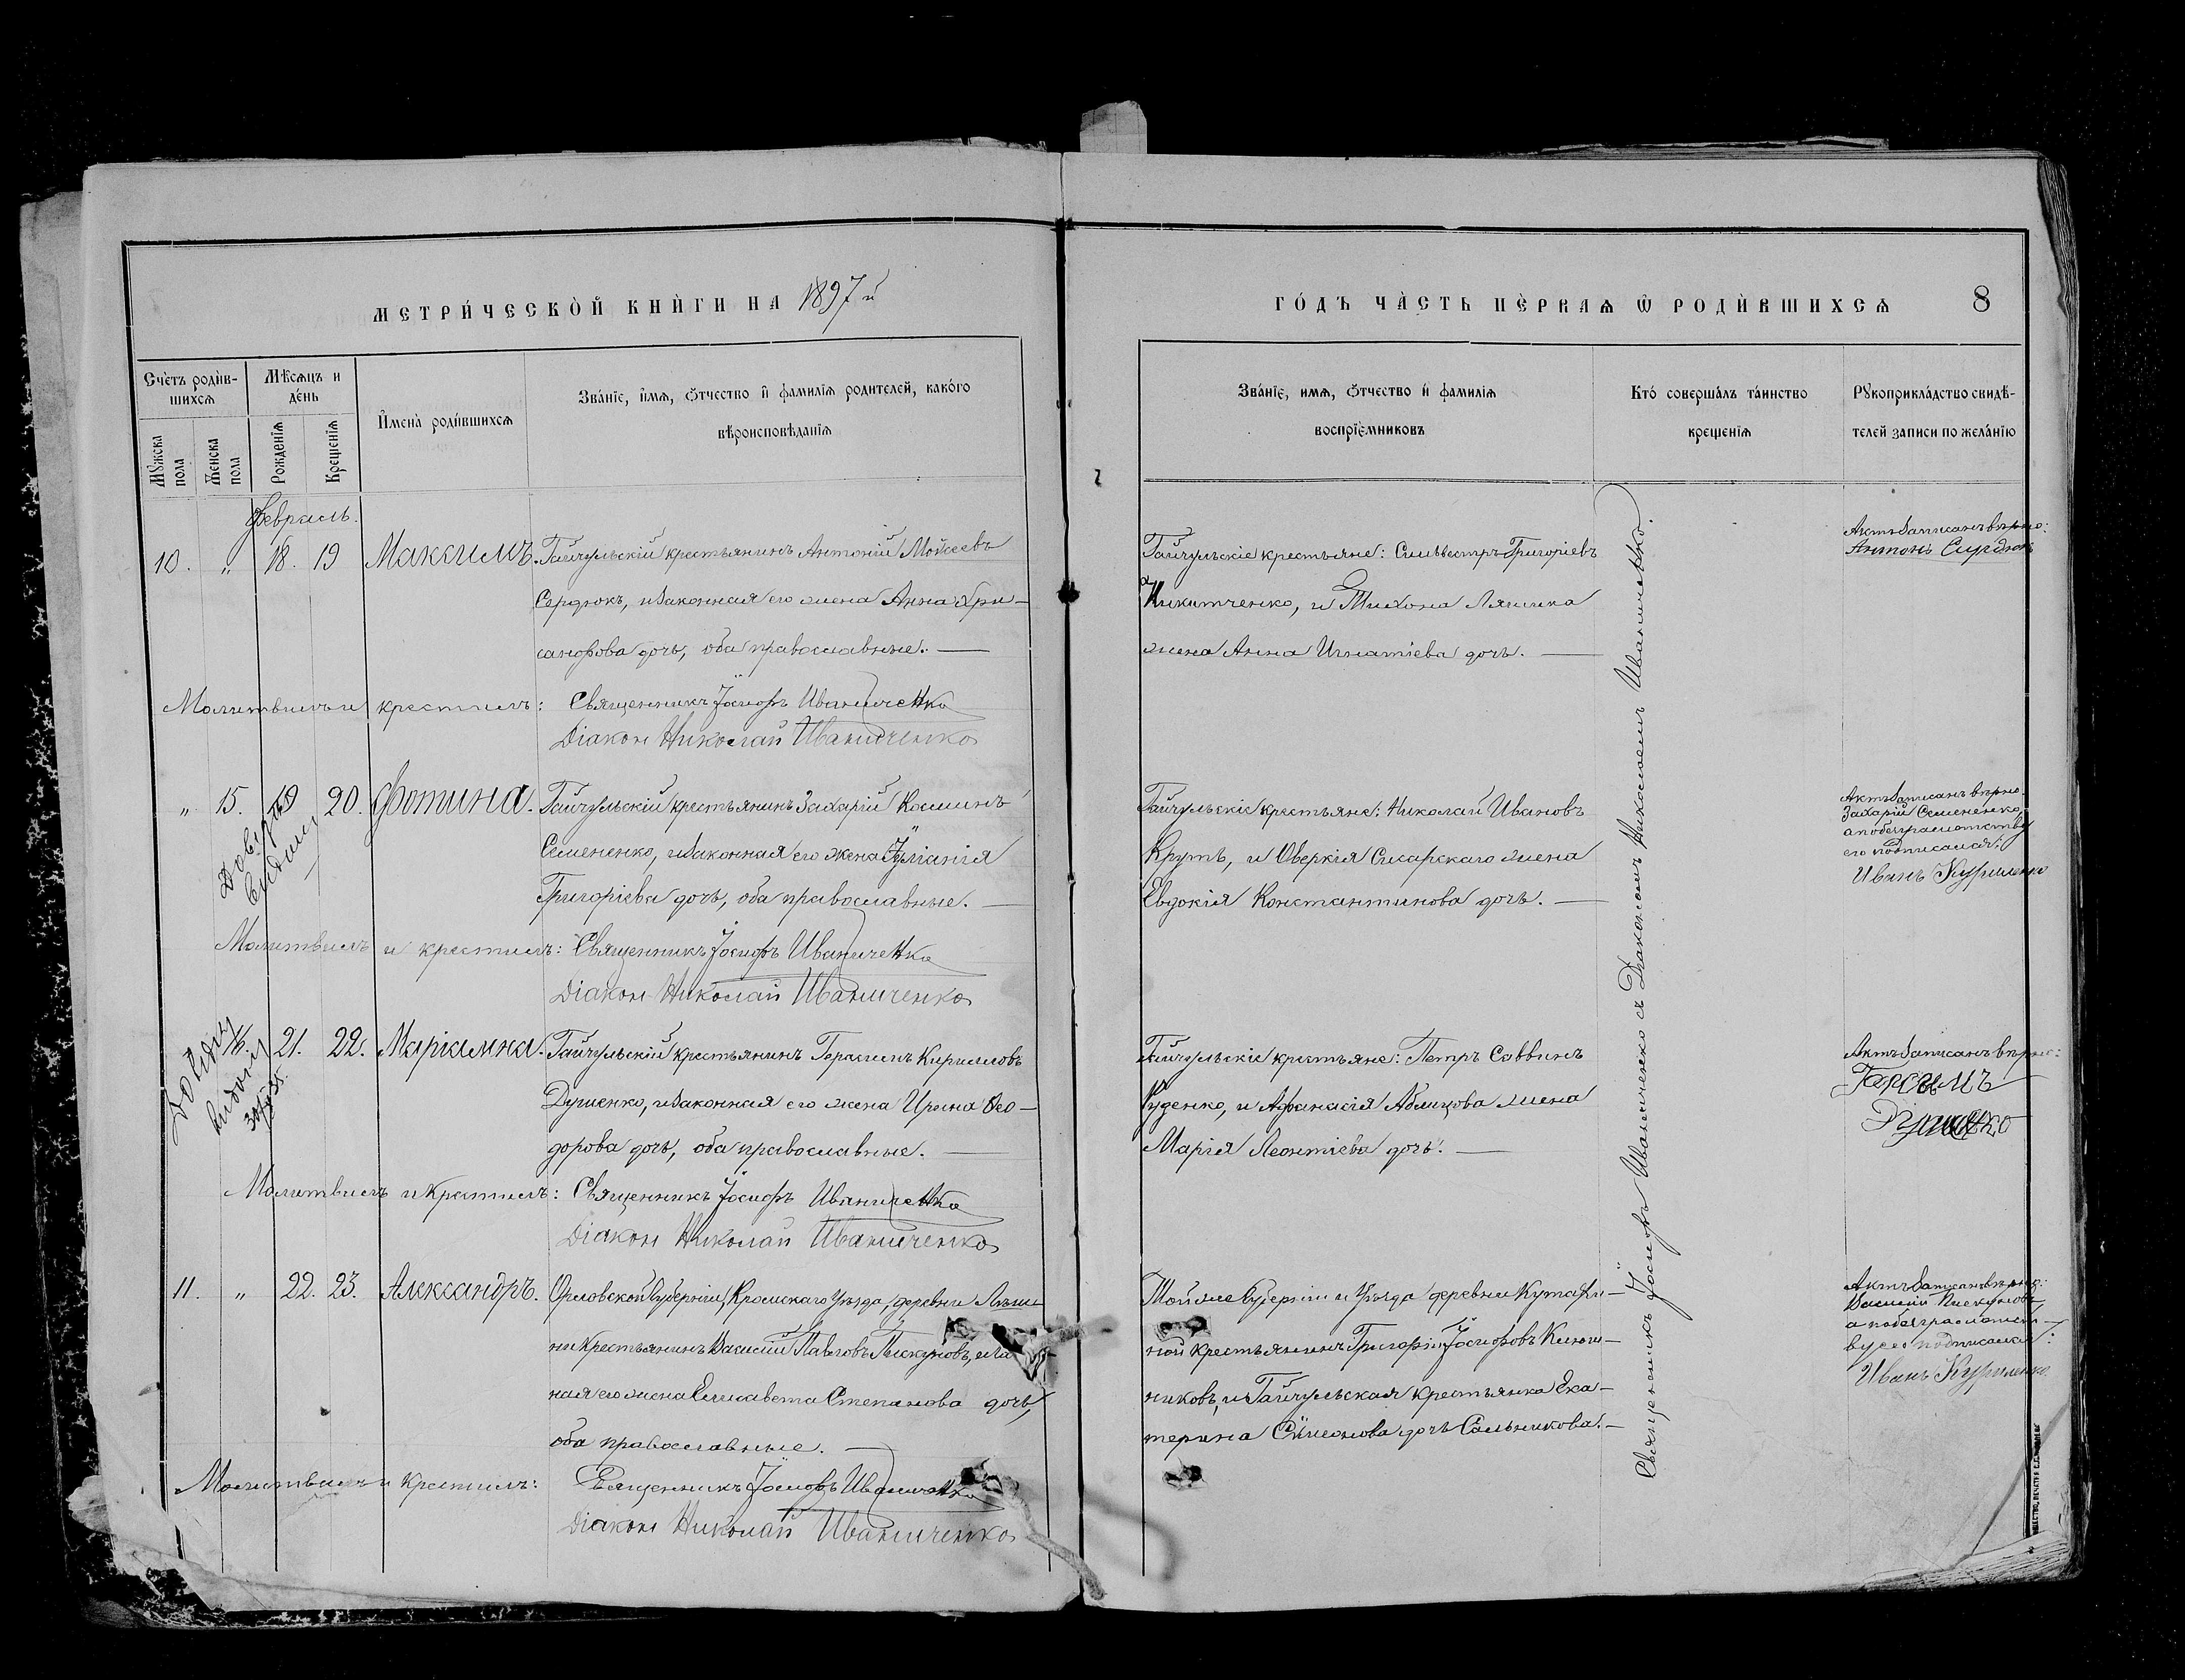 МЕТРИ́ЧЕСКО̀Й КНЍГИ НА 1897 й
ГО́ДЪ ЧА̀СТЬ ПЀРВАѦ Ѿ РОДЍВШИХСѦ 8
Счѐтъ родѝв-
шихсѧ
Мѣ́сѧцъ и
де́нь
Мꙋ́жеска
пола
Же́нска
пола
Рожденїѧ
Крещенїѧ
И҆мена̀ роди́вшихсѧ
Зва́нїе, и҆́мѧ, ѻ҆́тчество и҆ фамилїѧ родителей, како́го
вѣроисповѣданїѧ
Зва́нїе, имѧ, ѻ҆́тчество и҆ фамилїѧ
воспрїе́мниковъ
Кто́ соверша́лъ та́инство
крещенїѧ
Рꙋкоприкла́дство свидѣ́-
телей записи по жела́нїю
Февраль.
10. „ 18. 19 Максимъ.
Гайчульскій крестьянинъ Антоній Мойсеевъ
Сердюкъ, и законная его жена Анна Хри-
санфова дочь, оба православные. —
Гайчульскіе крестьяне: Сильвестръ Григоріевъ
Никитченко, и Тихона Ляшка
жена Анна Игнатіева дочь. —
Актъ записанъ вѣрно:
Антонъ Сердюкъ
Молитвилъ и крестилъ: Священникъ Іосифъ Иваниченко
Діакон Николай Иваниченко
„ 15. 19 20. Фотина.
Гайчульскій крестьянинъ Захарій Косминъ
Семененко, и законная его жена Іуліанія
Григоріева дочь, оба православные. —
Гайчульскіе крестьяне: Николай Ивановъ
Крутъ, и Оверкія Сисарскаго жена
Евдокія Константинова дочь. —
Актъ записанъ вѣрно.
Захарій Семененко,
а по безграмотству
его подписался:
Иванъ Куриленко
Молитвилъ и крестилъ: Священникъ Іосифъ Иваниченко
Діакон Николай Иваниченко
16. 21. 22. Маріамна.
Гайчульскій крестьянинъ Герасимъ Кирилловъ
Душенко, и законная его жена Ирина Ѳео-
дорова дочь, оба православные. —
Гайчульскіе крестьяне: Петръ Саввинъ
Руденко, и Афанасія Аблицова жена
Марія Леонтіева дочь. —
Актъ записанъ вѣрно:
Молитвилъ и крестилъ: Священникъ Іосифъ Иваниченко
Діакон Николай Иваниченко
11. „ 22. 23. Александръ.
Орловской Губерніи, Кромскаго Уѣзда, деревни
ни крестьянинъ Василій Павловъ Пискуновъ,
ная его жена Елисавета Степанова дочь,
оба православные. —
Той же Губерніи и Уѣзда деревни Кутафи-
ной крестьянинъ Григорій Іосифовъ
никовъ, и Гайчульская крестьянка Ека-
терина Симеонова дочь Сальникова. —
Актъ записанъ вѣрно:
Василій Пискуновъ,
а по безграмотст-
ву его подписался:
Иванъ Куриленко
Молитвилъ и крестилъ: Священникъ Іосифъ Иваниченко
Діакон Николай Иваниченко
Священникъ Іосифъ Иваниченко съ Діакономъ Николаемъ Иваниченко.